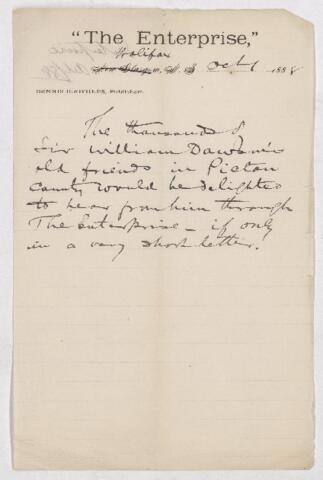 "The Enterprise,"
Halifax
Oct 1 1888
The thousands of
Sir William Dawson's
old friends in Pictou
County would be delighted
to hear from him through
The Enterprise - if only
in a very short letter.